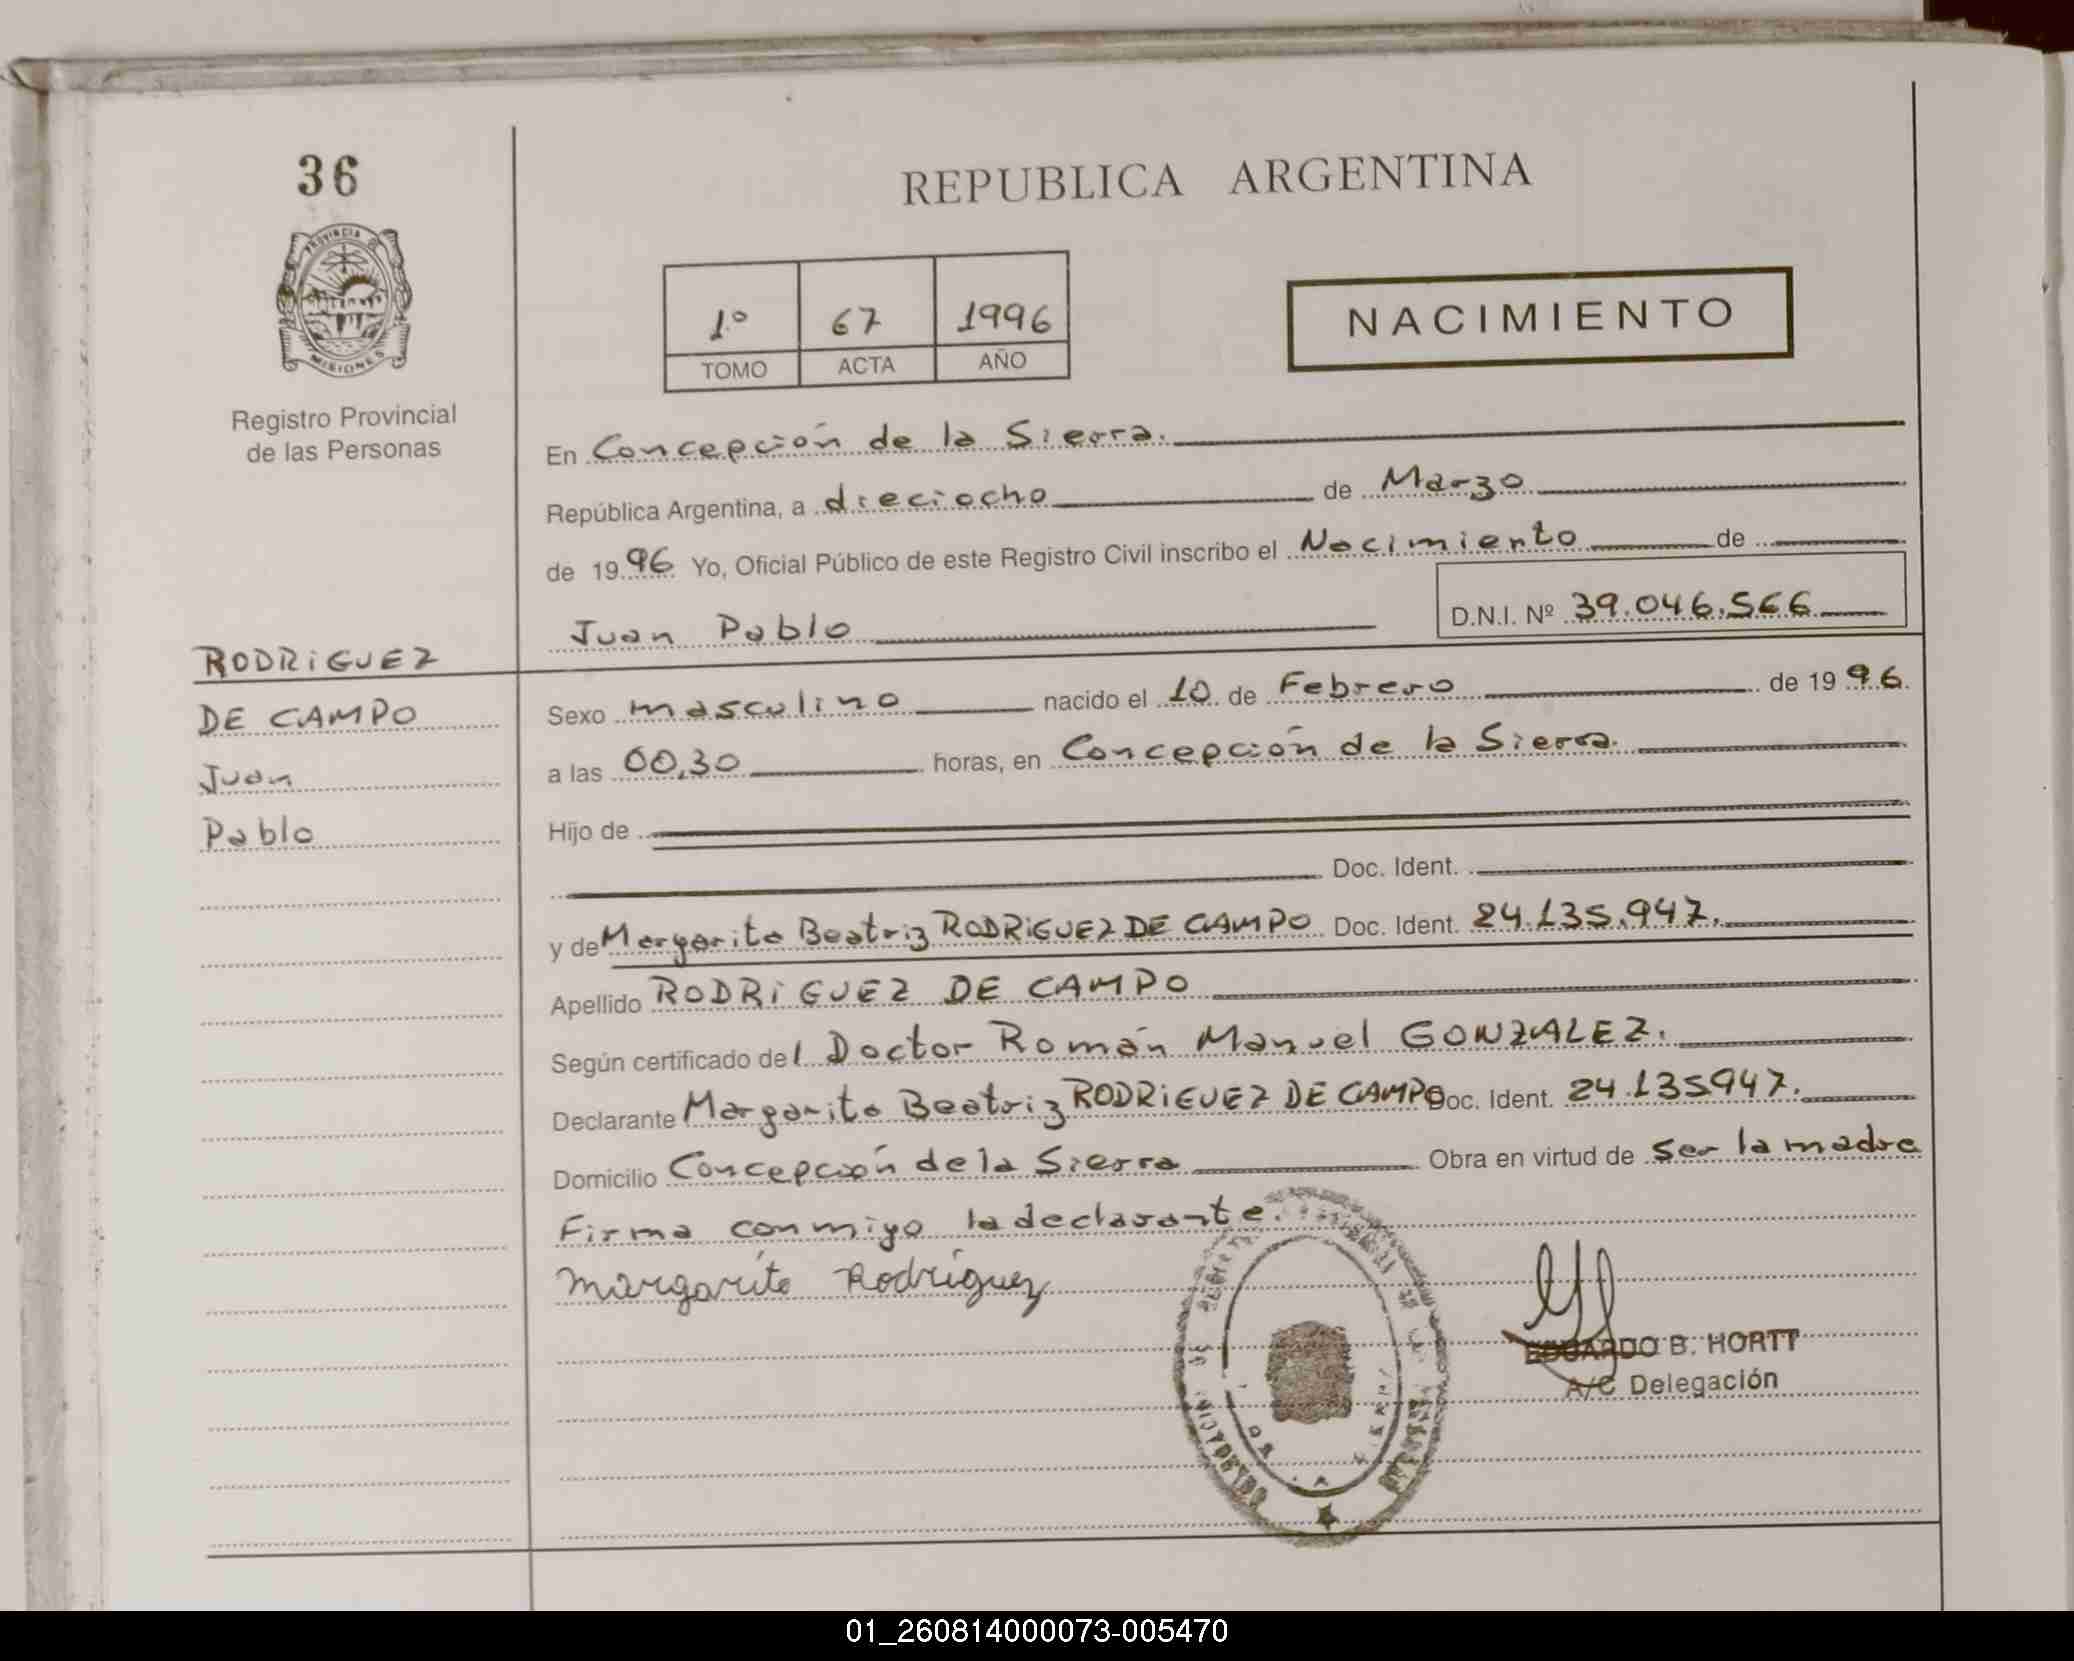 36
PROVINCIA DE
MISIONES
Registro Provincial
de las Personas
REPUBLICA ARGENTINA
1º 67 1996
TOMO ACTA AÑO
NACIMIENTO
En Concepción de la Sierra.
República Argentina, a dieciocho de Marzo
de 1996 Yo, Oficial Público de este Registro Civil inscribo el Nacimiento de
Juan Pablo D.N.I. Nº 39.046.566
RODRIGUEZ
DE CAMPO
Juan
Pablo
Sexo masculino nacido el 10 de Febrero de 1996.
a las 00,30 horas, en Concepción de la Sierra.
Hijo de
Doc. Ident.
y de Margarita Beatriz RODRIGUEZ DE CAMPO Doc. Ident. 24.135.947.
Apellido RODRIGUEZ DE CAMPO
Según certificado del Doctor Román Manuel GONZALEZ.
Declarante Margarita Beatriz RODRIGUEZ DE CAMPO Doc. Ident. 24.135947.
Domicilio Concepción de la Sierra Obra en virtud de ser la madre
Firma conmigo la declarante.
Margarita Rodríguez
EDUARDO B. HORTT
A/C Delegación
01_260814000073-005470